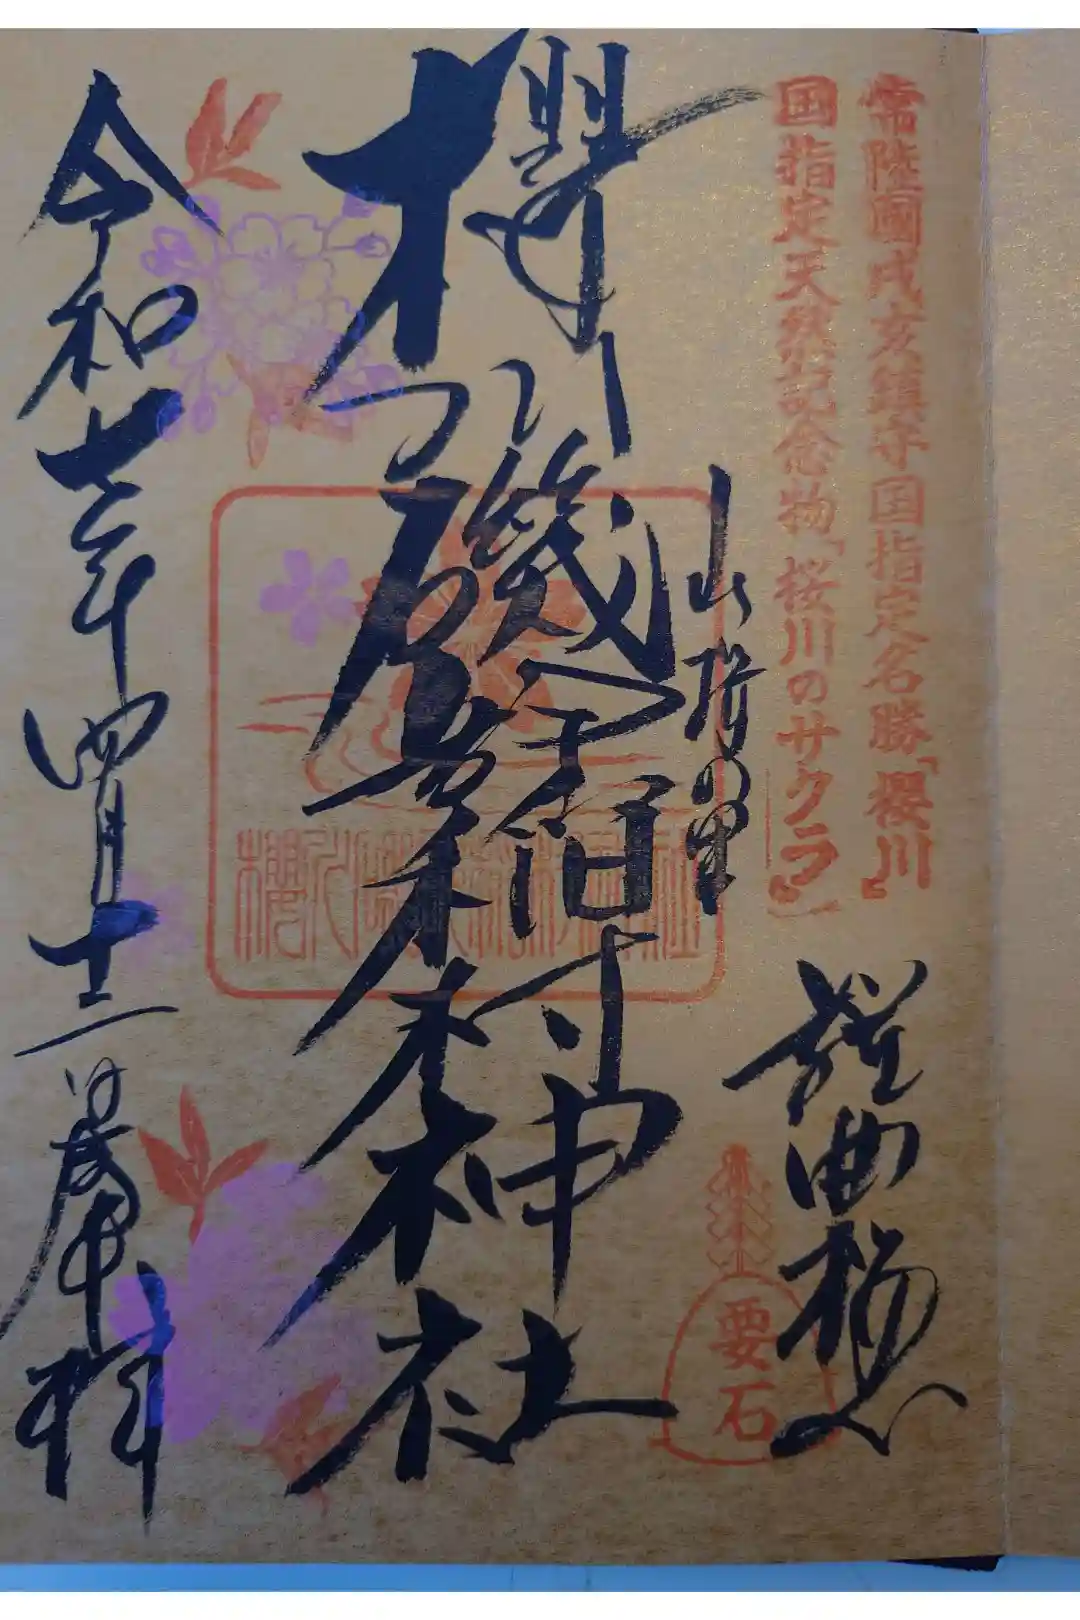 常陸國戌亥鎮守国指定名勝「櫻川」
国指定天然記念物「桜川のサクラ」
謡曲
要石
山桜の里
櫻川磯部稲村神社
令和七年四月十二日奉拝